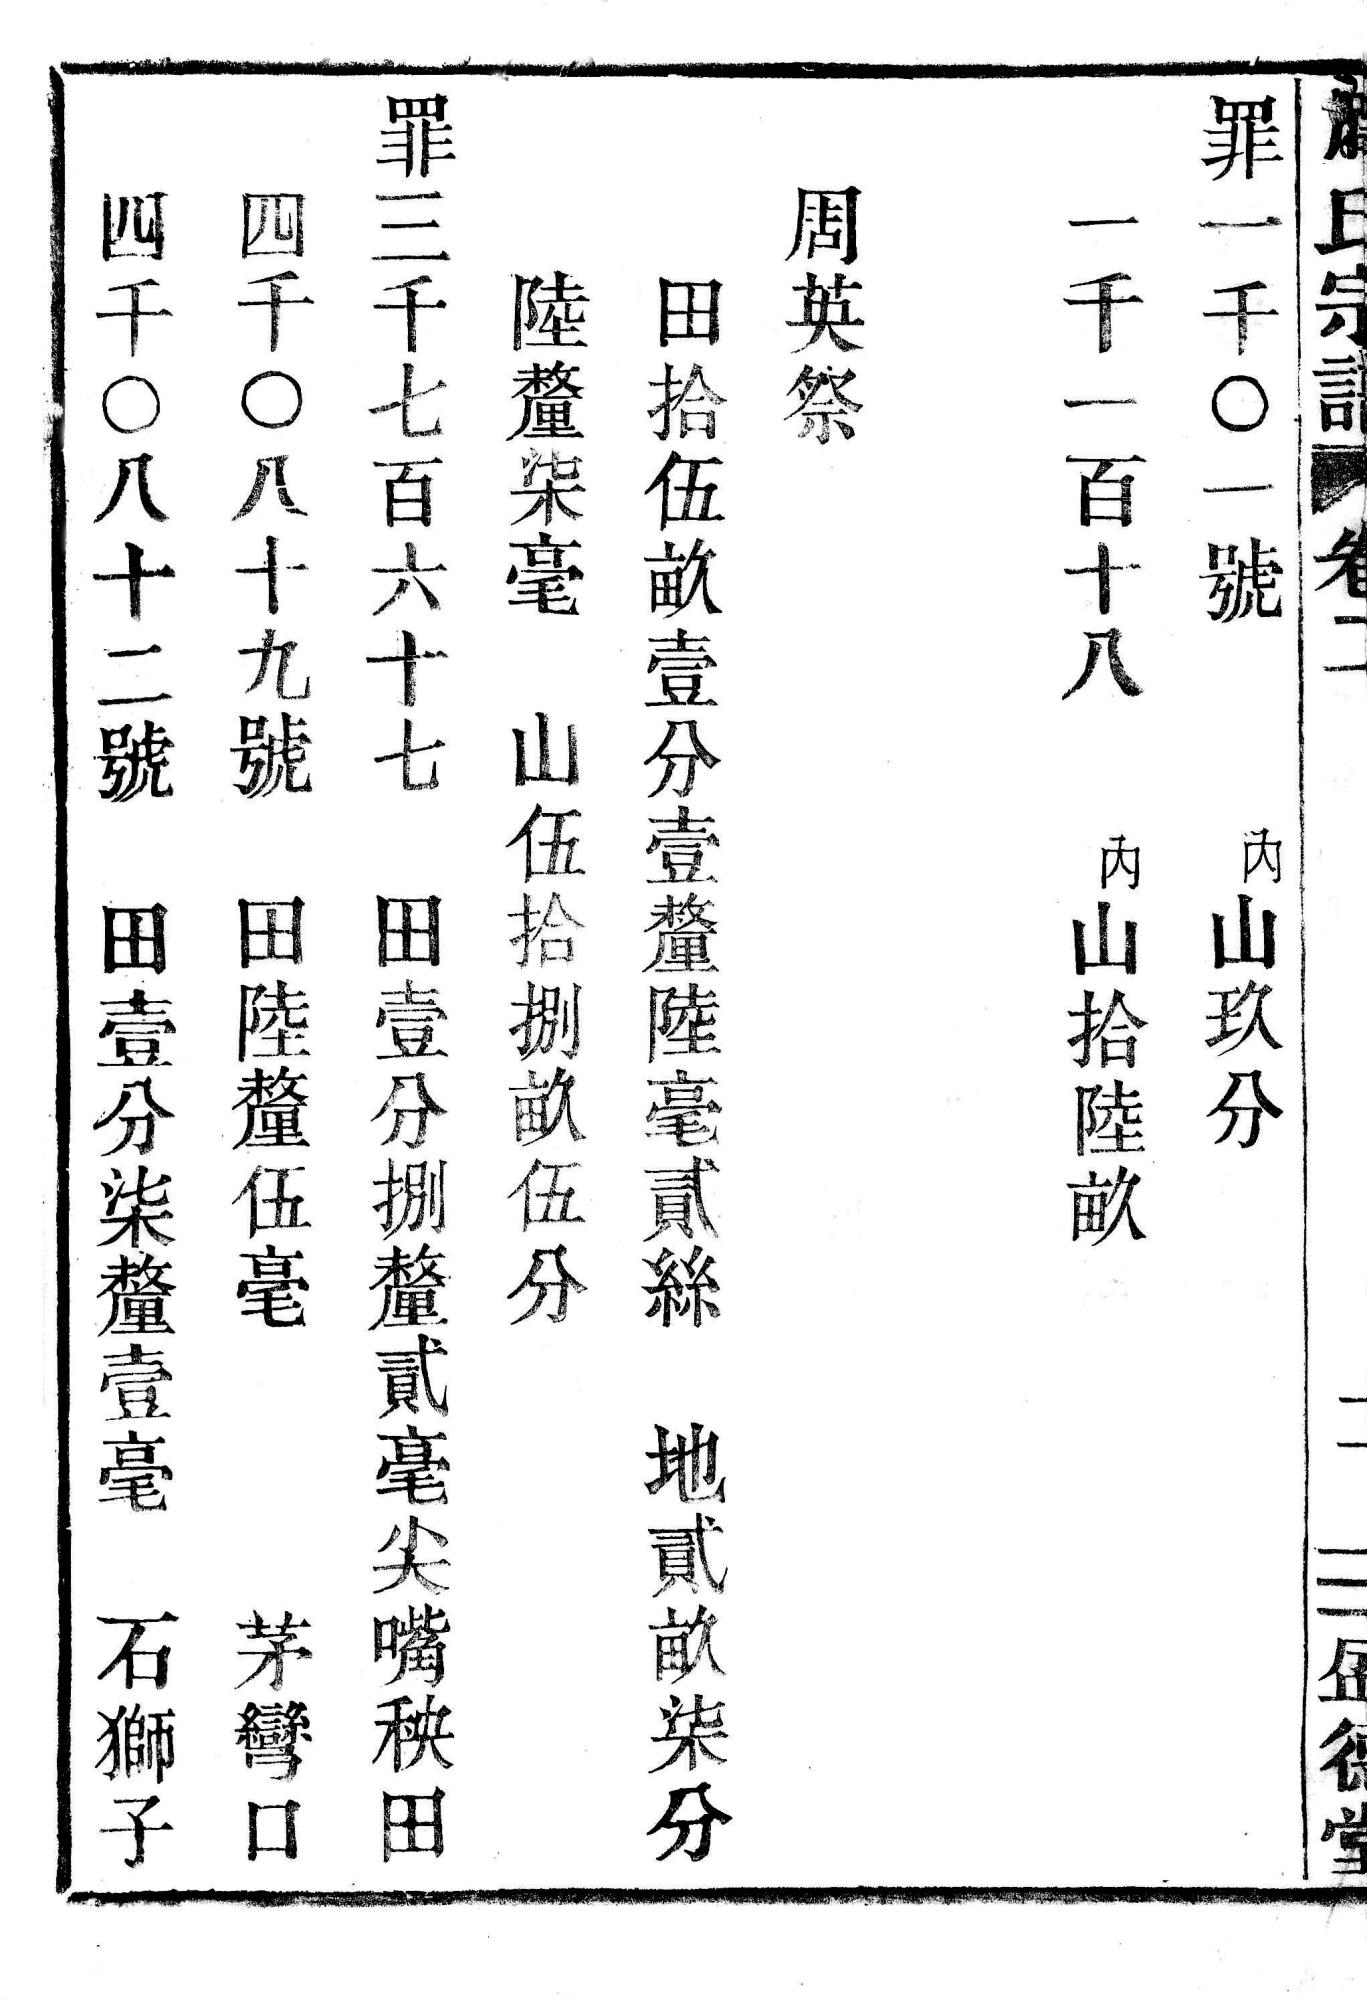 氏宗譜 卷二 二 三 孟德堂
罪一千〇一號 內山玖分
一千一百十八 內山拾陸畝
周英祭
田拾伍畝壹分壹釐陸毫貳絲 地貳畝柒分
陸釐柒毫 山伍拾捌畝伍分
罪三千七百六十七 田壹分捌釐貳毫尖嘴秧田
四千〇八十九號 田陸釐伍毫 茅彎口
四千〇八十二號 田壹分柒釐壹毫 石獅子